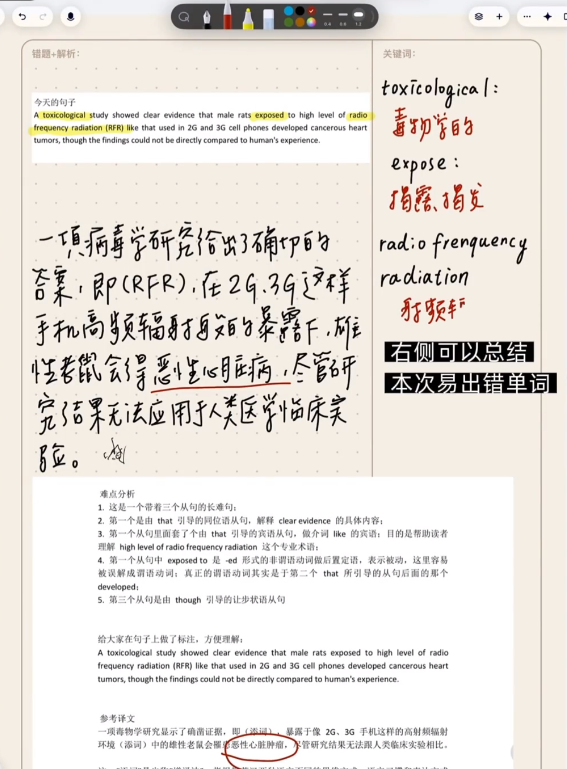 错题+解析:
关键词:
今天的句子
A toxicological study showed clear evidence that male rats exposed to high level of radio
frequency radiation (RFR) like that used in 2G and 3G cell phones developed cancerous heart
tumors, though the findings could not be directly compared to human's experience.
toxicological:
毒物学的
expose:
揭露、揭发
radio frenquency
radiation
射频
右侧可以总结
本次易出错单词
一项病毒学研究给出了确切的
答案,即(RFR),在2G.3G这样
手机高频辐射的暴露下,雄
性老鼠会得恶性心脏病,尽管研
究结果无法应用于人类医学临床实
验。
难点分析
1. 这是一个带着三个从句的长难句;
2. 第一个是由 that 引导的同位语从句,解释 clear evidence 的具体内容;
3. 第一个从句里面套了个由 that 引导的宾语从句,做介词 like 的宾语;目的是帮助读者
理解 high level of radio frequency radiation 这个专业术语;
4. 第一个从句中 exposed to 是 -ed 形式的非谓语动词做后置定语,表示被动,这里容易
被误解成谓语动词;真正的谓语动词其实是于第二个 that 所引导的从句后面的那个
developed;
5. 第三个从句是由 though 引导的让步状语从句
给大家在句子上做了标注,方便理解:
A toxicological study showed clear evidence that male rats exposed to high level of radio
frequency radiation (RFR) like that used in 2G and 3G cell phones developed cancerous heart
tumors, though the findings could not be directly compared to human's experience.
参考译文
一项毒物学研究显示了确凿证据,即(添词),暴露于像 2G、3G 手机这样的高射频辐射
环境(添词)中的雄性老鼠会罹患恶性心脏肿瘤,尽管研究结果无法跟人类临床实验相比。